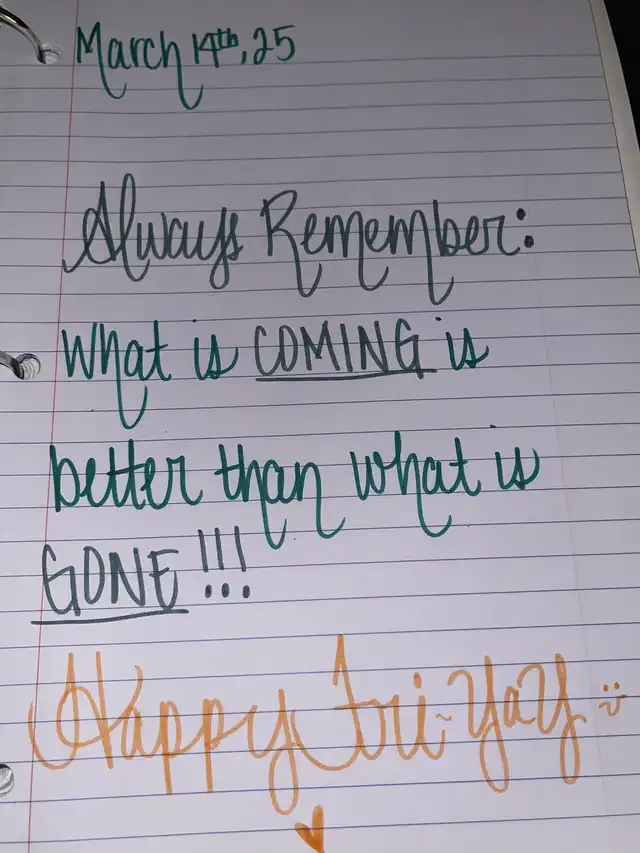 March 14th, 25
Always Remember:
What is COMING is
better than what is
GONE!!!
Happy Fri-YaY :)